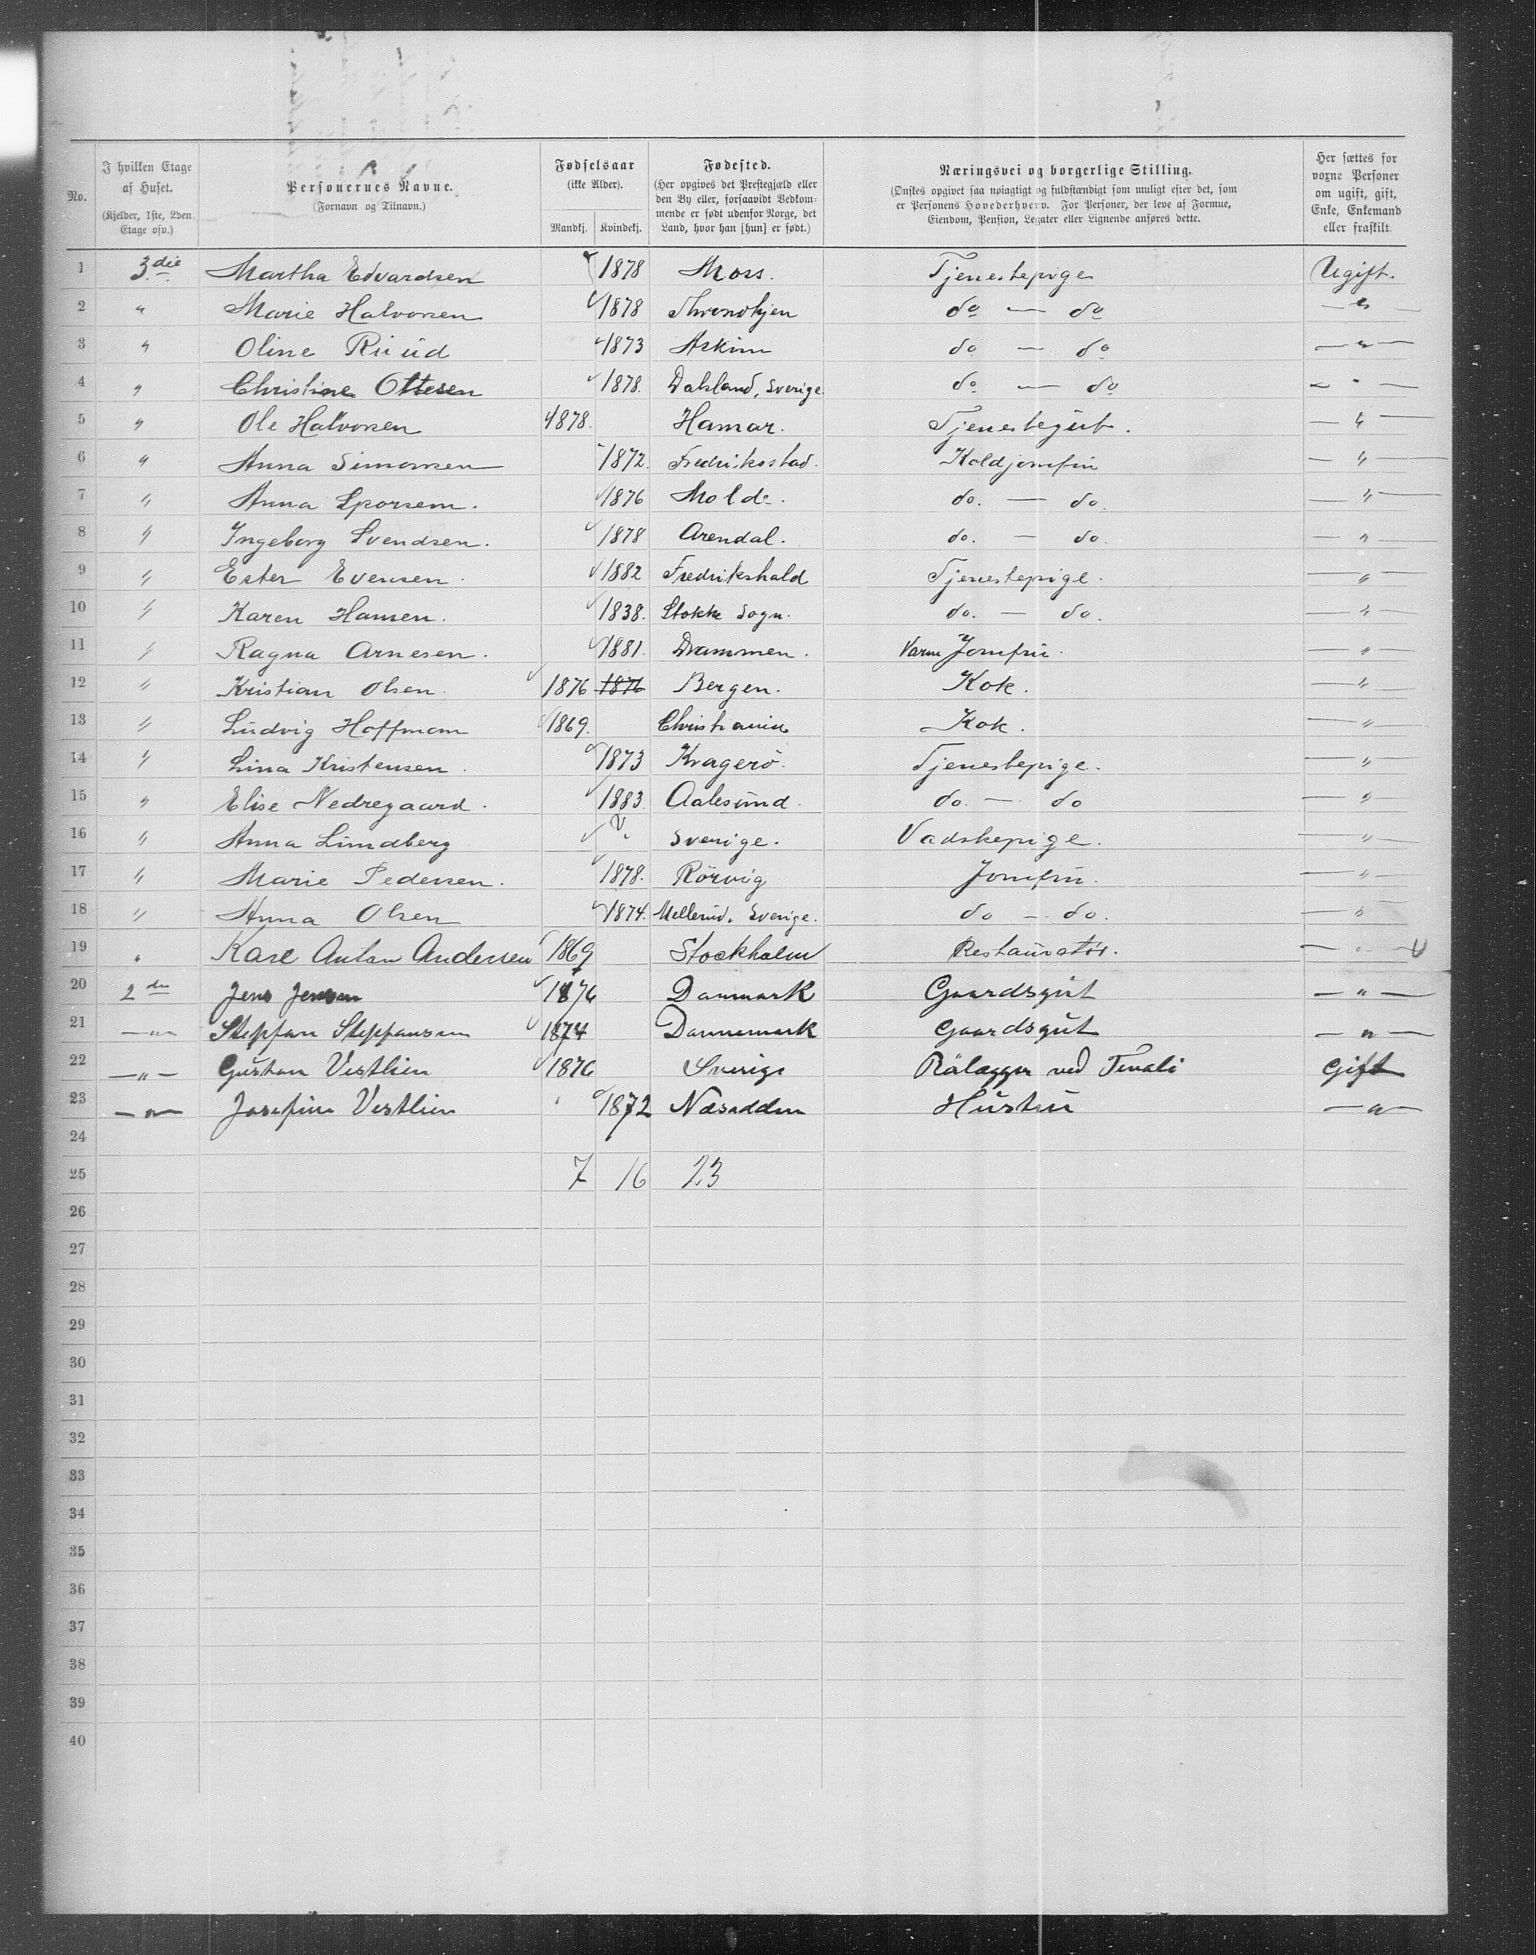 No. | I hvilken Etage af Huset. (Kjelder, 1ste, 2den Etage osv.) | Personernes Navne. (Fornavn og Tilnavn.) | Fødselsaar (ikke Alder). Mandkj. | Kvindekj. | Fødested. (Her opgives det Prestegjæld eller den By eller, forsaavidt Vedkommende er født udenfor Norge, det Land, hvor han [hun] er født.) | Næringsvei og borgerlige Stilling. (Ønskes opgivet saa nøiagtigt og fuldstændigt som muligt efter det, som er Personens Hovederhverv. For Personer, der leve af Formue, Eiendom, Pension, Legater eller Lignende anføres dette. | Her sættes for voxne Personer om ugift, gift, Enke, Enkemand eller fraskilt.
1 3die Martha Edvardsen 1878 Moss. Tjenestepige Ugift.
2 " Marie Halvorsen 1878 Throndhjen do — do — " —
3 " Oline Ruud 1873 Askim do — do — " —
4 " Christine Ottesen 1878. Dalsland, Sverige. do — do — " —
5 " Ole Halvorsen 1878. Hamar. Tjenestegut. — " —
6 " Anna Simonsen 1872. Fredriksstad. Koldjomfru — " —
7 " Anna Sporsem. 1876 Molde. do. — do. — " —
8 " Ingeborg Svendsen. 1878 Arendal. do. — do. — " —
9 " Ester Evensen. 1882 Fredrikshald Tjenestepige. — " —
10 " Karen Hansen. 1838. Stokke Sogn. do. — do. — " —
11 " Ragna Arnesen. 1881. Drammen. Varm Jomfru. — " —
12 " Kristian Olsen. 1876 1876 Bergen. Kok. — " —
13 " Ludvig Hoffmann 1869. Christiania Kok. — " —
14 " Lina Kristensen. 1873 Kragerö. Tjenestepige. — " —
15 " Elise Nedregaard. 1883. Aalesund. do. — do — " —
16 " Anna Lundberg ? Sverige. Vadskepige. — " —
17 " Marie Pedersen. 1878. Rörvig Jomfru. — " —
18 " Anna Olsen 1874. Mellerud. Sverige. do — do. — " —
19 " Karl Anton Andersen 1869 Stockholm Restauratør. — " —
20 2den Jens Jensen 1876 Danmark Gaardsgut — " —
21 — " — Steffan Steffansen 1874 Dannemark Gaardsgut — " —
22 — " — Gustav Vestlien 1876 Sverige ved Tivoli Gift
23 — " — Josefine Vestlien 1872 Næsodden Hustru — " —
24
25 7 16 23
26
27
28
29
30
31
32
33
34
35
36
37
38
39
40